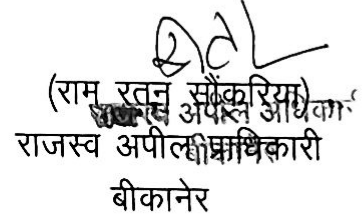 (राम रतन सौंकरिया)
राजस्व अपील अधिकारी
राजस्व अपील प्राधिकारी
बीकानेर